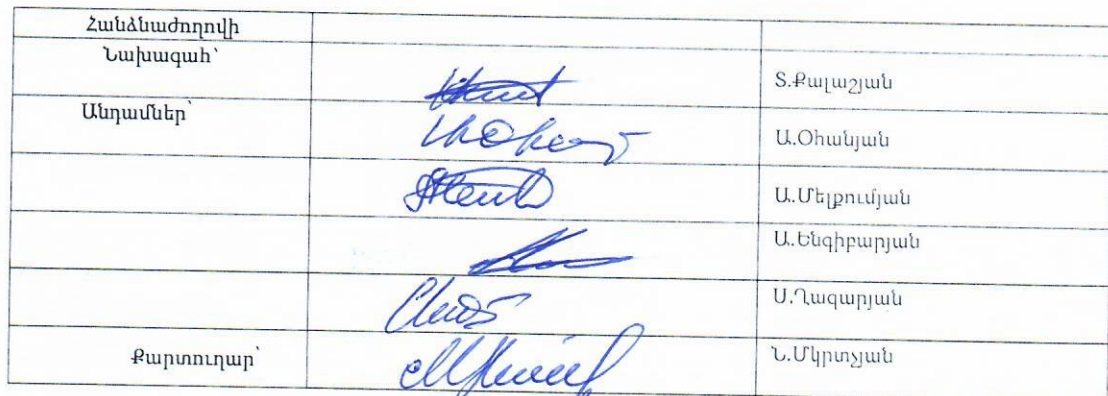 Հանձնաժողովի
Նախագահ՝
Տ.Քալաշյան
Անդամներ՝
Ա.Օհանյան
Ա.Մելքումյան
Ա.Ենգիբարյան
Ս.Ղազարյան
Քարտուղար՝
Ն.Մկրտչյան